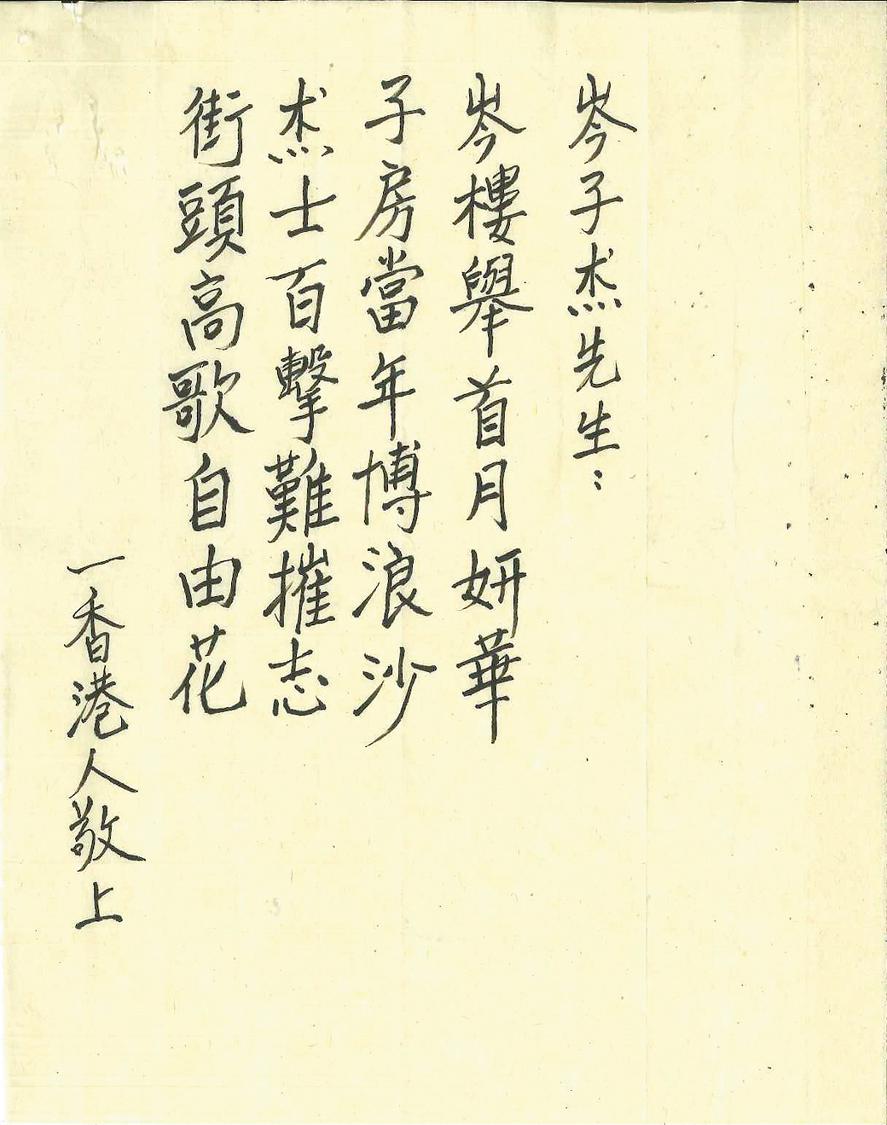 岑子杰先生：
岑樓舉首月妍華
子房當年博浪沙
杰士百擊難摧志
街頭高歌自由花
一香港人敬上